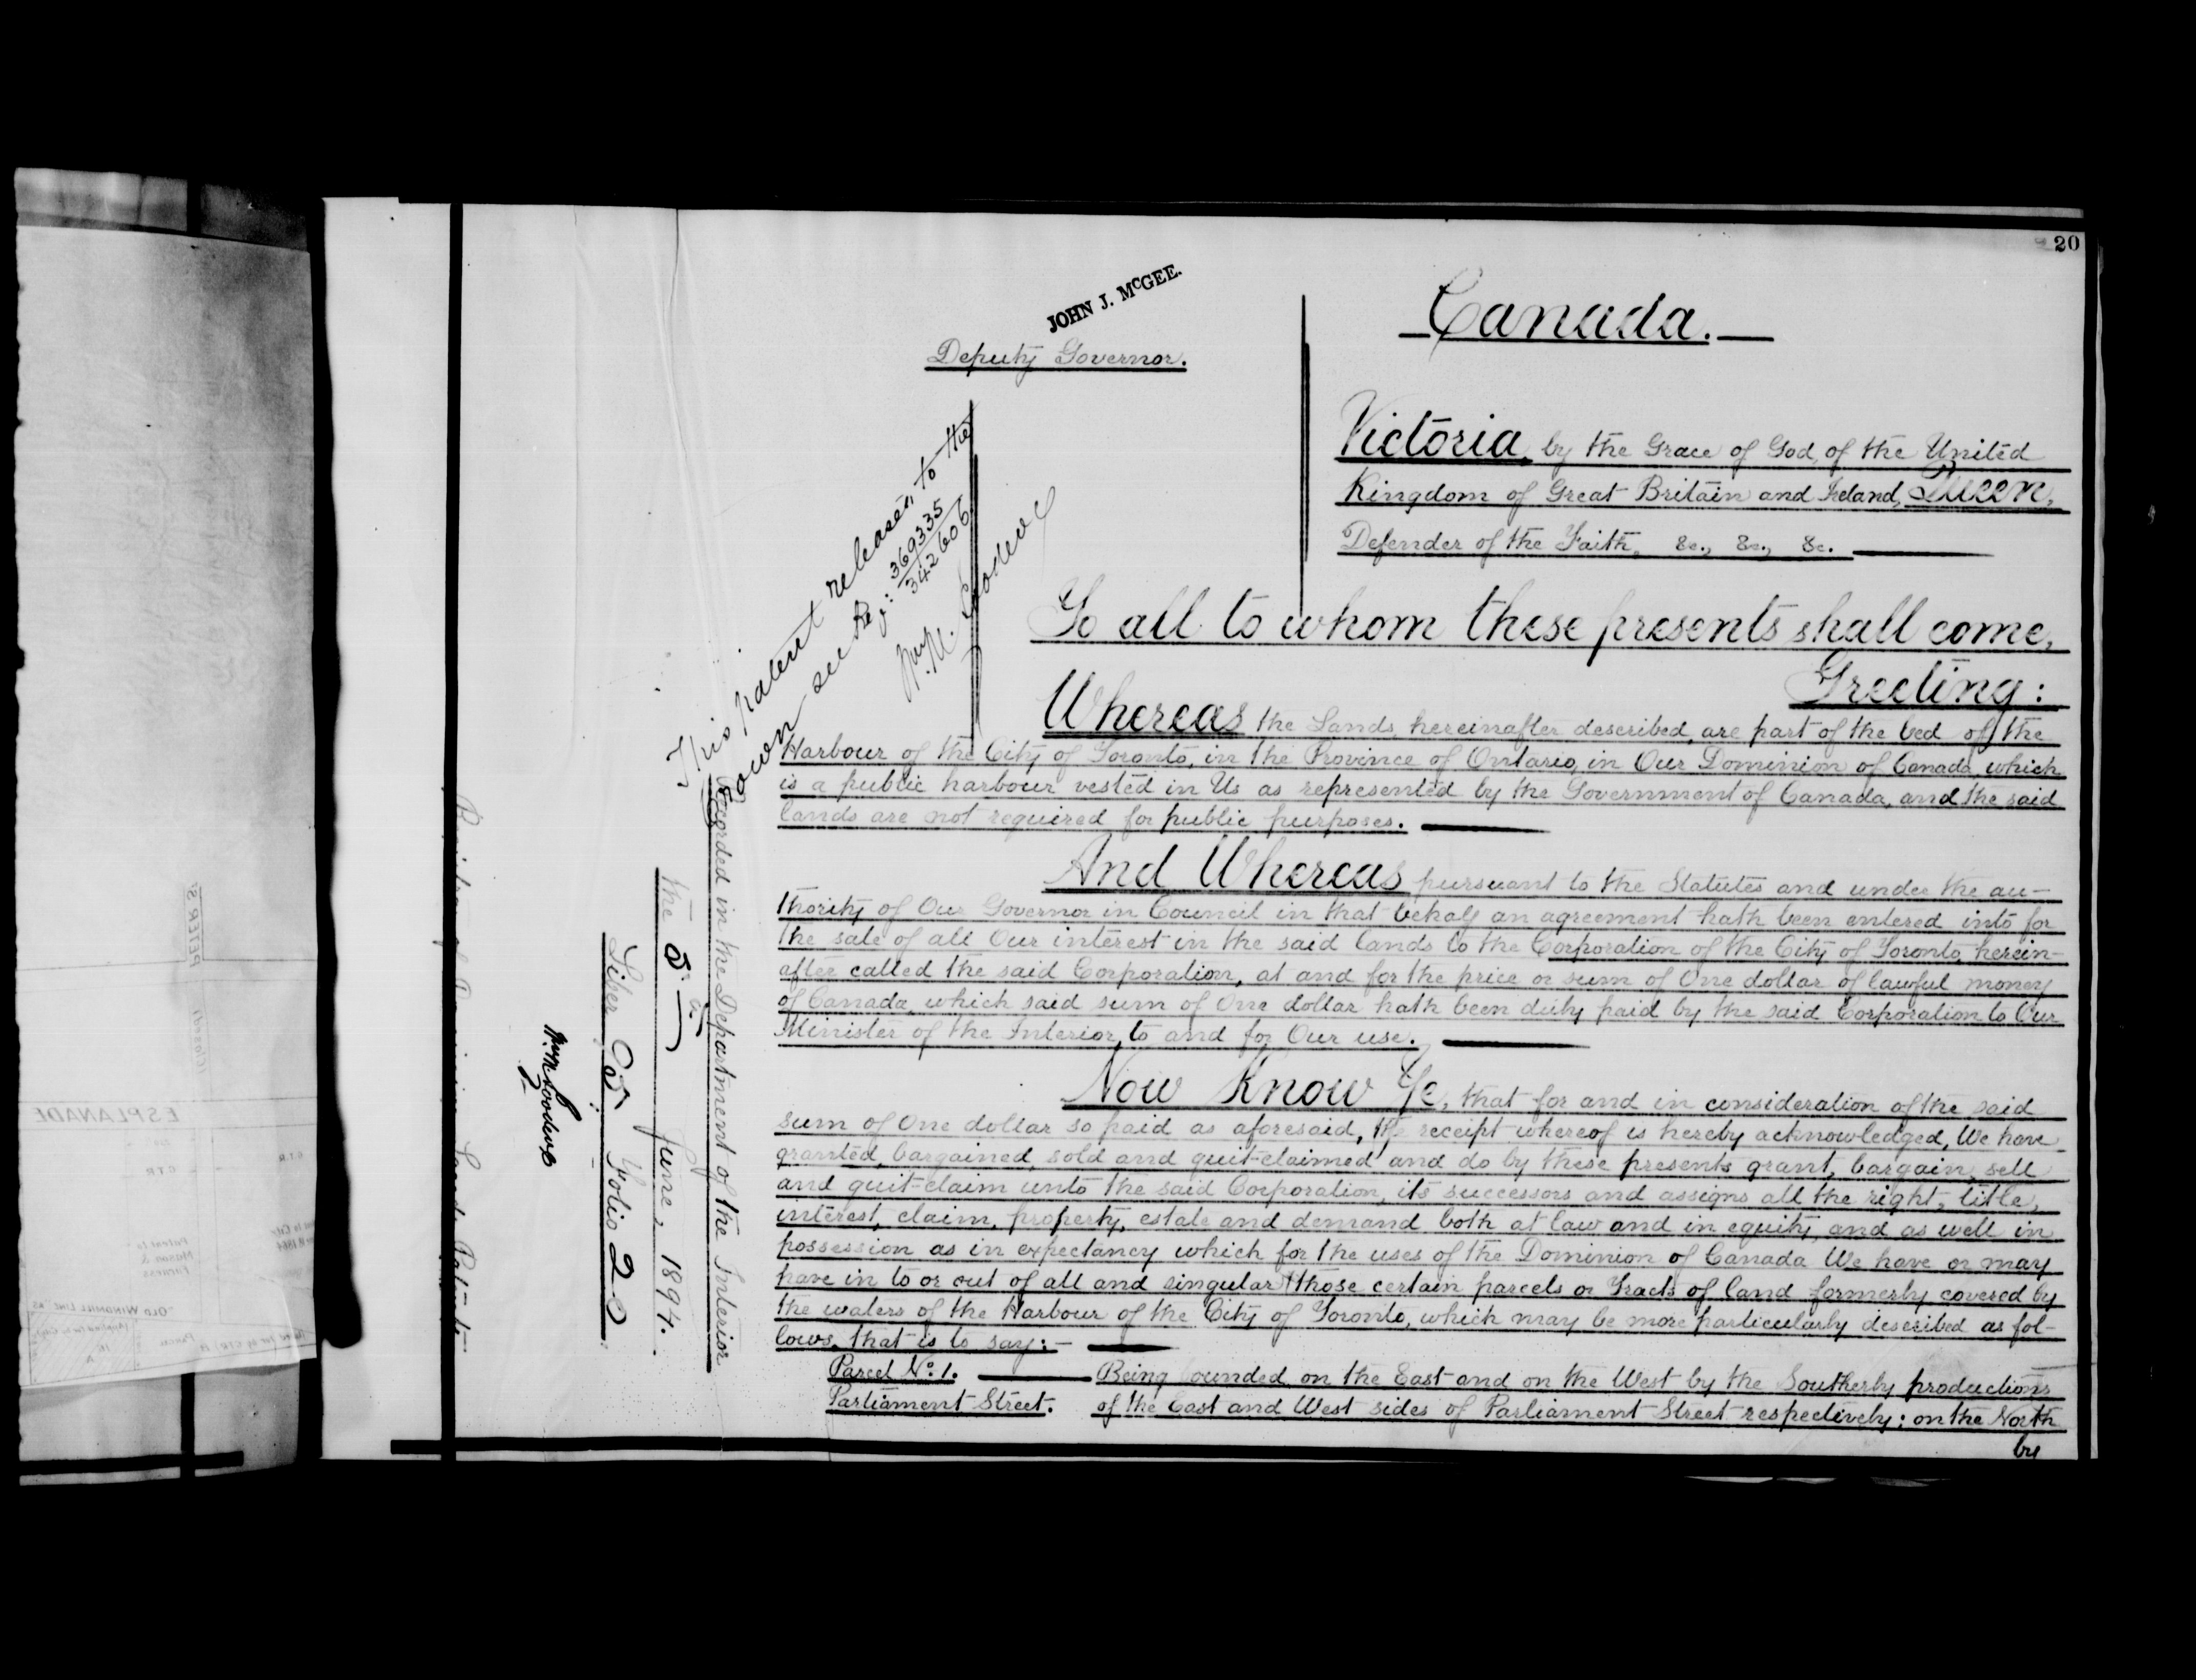 20
JOHN J. McGEE.
Deputy Governor.
Canada.
Victoria, by the Grace of God, of the United
Kingdom of Great Britain and Ireland, Queen,
Defender of the Faith, &c., &c., &c.
To all to whom these presents shall come,
Greeting:
Whereas the Lands, hereinafter described, are part of the bed of the
Harbour of the City of Toronto, in the Province of Ontario, in Our Dominion of Canada, which
is a public harbour vested in Us as represented by the Government of Canada, and the said
lands are not required for public purposes.
And Whereas pursuant to the Statutes and under the au-
thority of Our Governor in Council in that behalf an agreement hath been entered into for
the sale of all Our interest in the said lands to the Corporation of the City of Toronto, herein-
after called the said Corporation, at and for the price or sum of One dollar of lawful money
of Canada, which said sum of One dollar hath been duly paid by the said Corporation to Our
Minister of the Interior, to and for Our use.
Now Know Ye, that for and in consideration of the said
sum of One dollar so paid as aforesaid, the receipt whereof is hereby acknowledged, We have
granted, bargained, sold and quit-claimed and do by these presents grant, bargain, sell
and quit-claim unto the said Corporation, its successors and assigns all the right, title,
interest, claim, property, estate and demand both at law and in equity, and as well in
possession as in expectancy which for the uses of the Dominion of Canada We have or may
have in to or out of all and singular those certain parcels or Tracts of land formerly covered by
the waters of the Harbour of the City of Toronto, which may be more particularly described as fol-
lows, that is to say:-
Parcel No. 1. Being bounded on the East and on the West by the Southerly productions
Parliament Street. of the East and West sides of Parliament Street respectively: on the North
by
This patent released to the
Crown see the
369335
342606
Recorded in the Department of the Interior
the 5th June, 1894.
Liber 95: Folio 20
Registrar of Dominion Lands Patents.
PETER ST
ESPLANADE
G.T.R.
Patent to
Mason &
"OLD WINDMILL LINE"